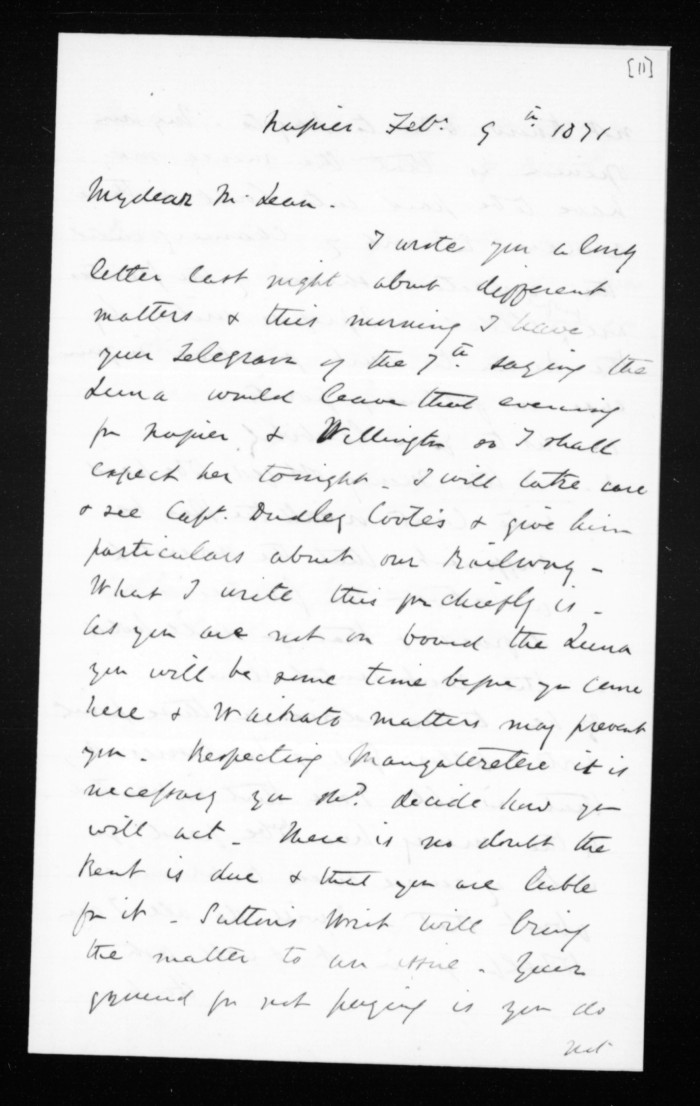 [11]
Napier Feb. 9th 1871
My dear McLean.
I wrote you a long
letter last night about different
matters & this morning I have
your Telegram of the 7th saying the
Luna would leave that evening
for Napier & Wellington so I shall
expect her tonight. I will take care
& see Capt. Dudley Coote's & give him
particulars about our Railway -
What I write this for chiefly is -
As you are not on board the Luna
you will be some time before you come
here & Waikato matters may prevent
you - Respecting Mangateretere it is
necessary you shd. decide how you
will act - There is no doubt the
Rent is due & that you are liable
for it - Sutton's Writ will bring
the matter to an issue - Your
ground for not paying is you do
not